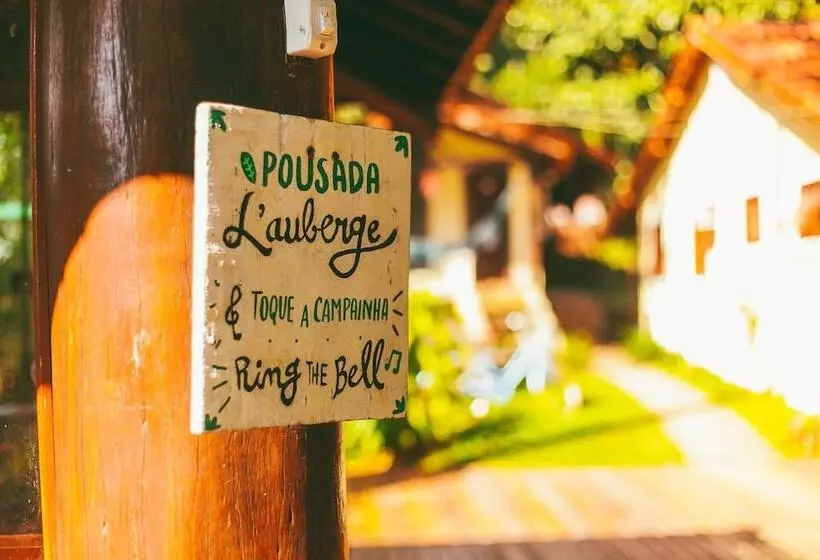 POUSADA
L'auberge
TOQUE A CAMPAINHA
Ring THE Bell